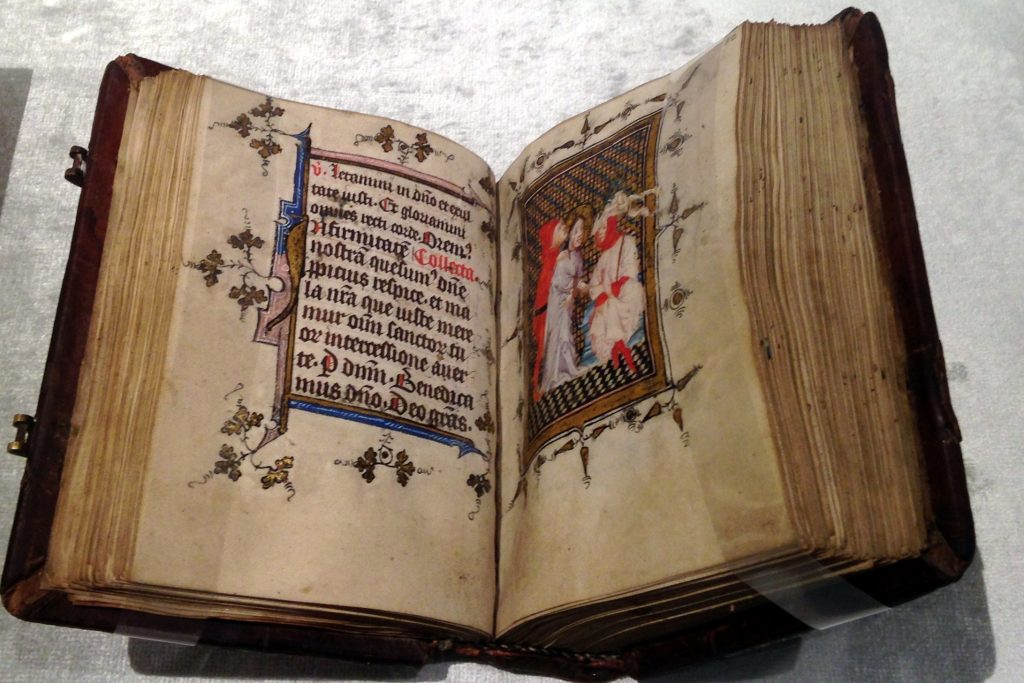 v̉. Letamini in dño et exul
tate iusti. Et gloriamini
omnes recti corde. Orem⁹.
Nfirmitatē Collecta.
nostrā quesum⁹ dñe
ppicius respice. et ma
la nr̄a que iuste mere
mur oīm sanctor tu
or intercessione auer
te. P dnm̄. Benedica
mus dño. Deo grās.